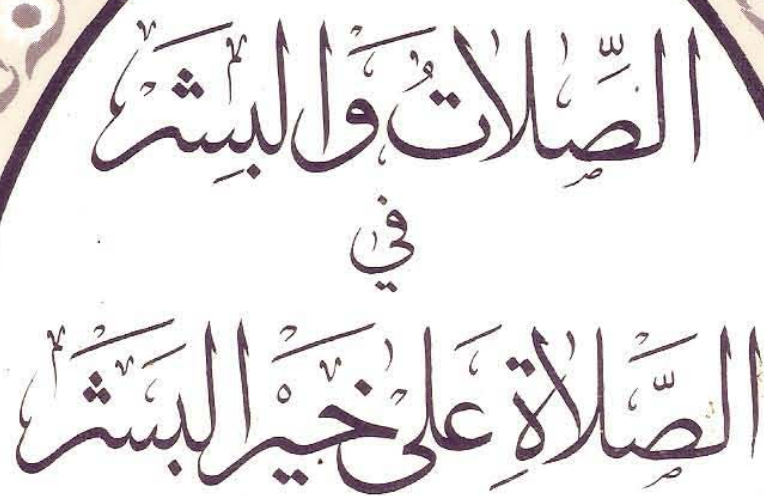 الصِّلاتُ وَالبِشَر
في
الصَّلاةِ عَلى خَيْرِ البَشَر